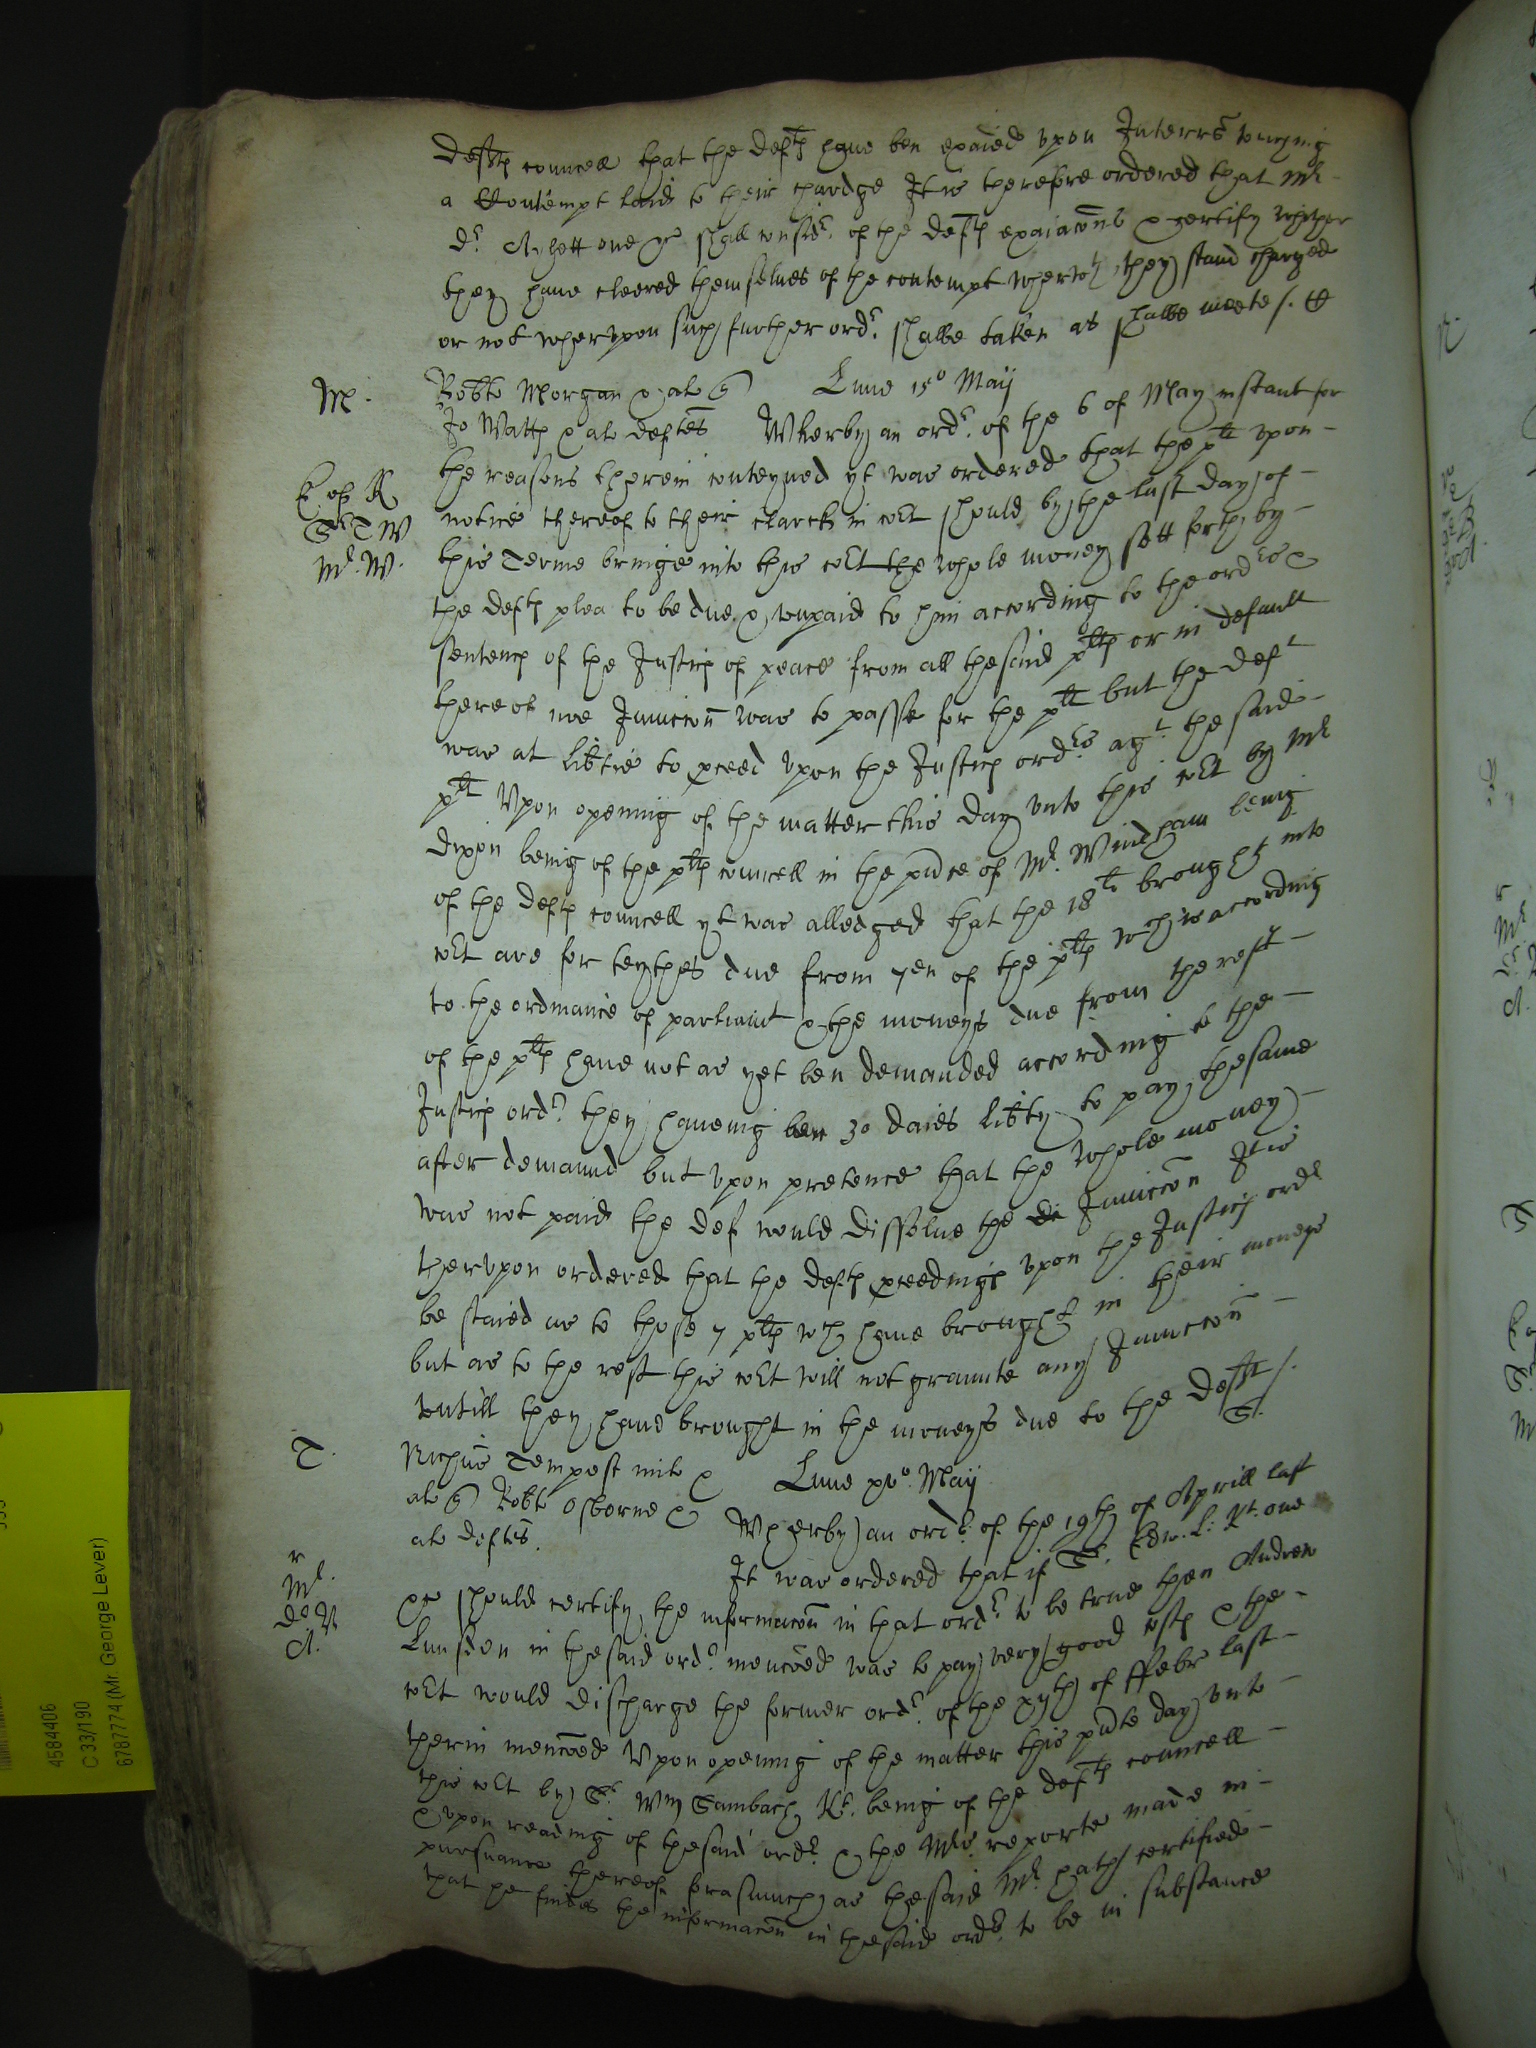 defts councell that the defts haue ben exaied vpon Interrs touching
a Contempt laid to their chardge It is therefore ordered that Mr
dr Aylett one &c shall consider of the defts exaiacons & certify whither
they haue cleered themselues of the contempt wherwth they stand charged
or not whervpon such further ordr shalbe taken as shalbe meete /.
M. Robte Morgan & al
Lune 15o Maij
Jo Watts & al deftes Wherby an ordr of the 6 of May instant for
the reasons therein conteyned yt was ordered that the plt vpon
notice thereof to their clarck in cort should by the last day of
this Terme bringe into this cort the whole money sett forth by
Mr. W.
the defts plea to be due & vnpaid to him according to the ordrs &
sentence of the Justices of peace from all thesaid plts or in default
thereof noe Iniuccon was to passe for the plt but the deft
was at libtie to proceed vpon the Justices ordrs agt the said
plt Vpon opening of the matter this day vnto this cort by Mr
dixon being of the plts councell in the pnce of Mr Windham being
of the defts councell yt was alledged that the 18li brought into
cort are for teythes due from 7en of the plts wch is according
to the ordinance of parliamt & the moneys due from the rest
of the plts haue not as yet ben demanded according to the
Justices ordr they haueing ben 30 daies libty to pay thesame
after demaund but vpon pretence that the whole money
was not paid the def would dissolue the di Iniuccon It is
thervpon ordered that the defts proceedings vpon the Justices ordr
be staied as to those 7 plts wch haue brought in their moneys
but as to the rest this cort will not graunte any Iniuccon
vntill they haue brought in the moneys due to the deft /.
T. Richus Tempest mil &
Lune xvo Maij
al Robte Osborne &
al deftes. Wherby an ordr of the 19th of Aprill last
It was ordered that if Sr. Edw. L: Kt. one
&c should certify the informacon in that ordr to be true then Andrew
Lumsden in thesaid ordr mencoed was to pay very good costs & the
cort would discharge the former ordr of the xyth of ffebr last
therin mencoed Vpon opening of the matter this pnte day vnto
this cort by Sr Wm Sambach Kt. being of the defts councell
& vpon reading of thesaid ordr & the Mrs. reporte made in
pursuance thereof forasmuch as thesaid Mr hath certified
that he findes the informacon in thesaid ordr to be in substance
4584406
C 33/190
6787774 (Mr. George Lever)